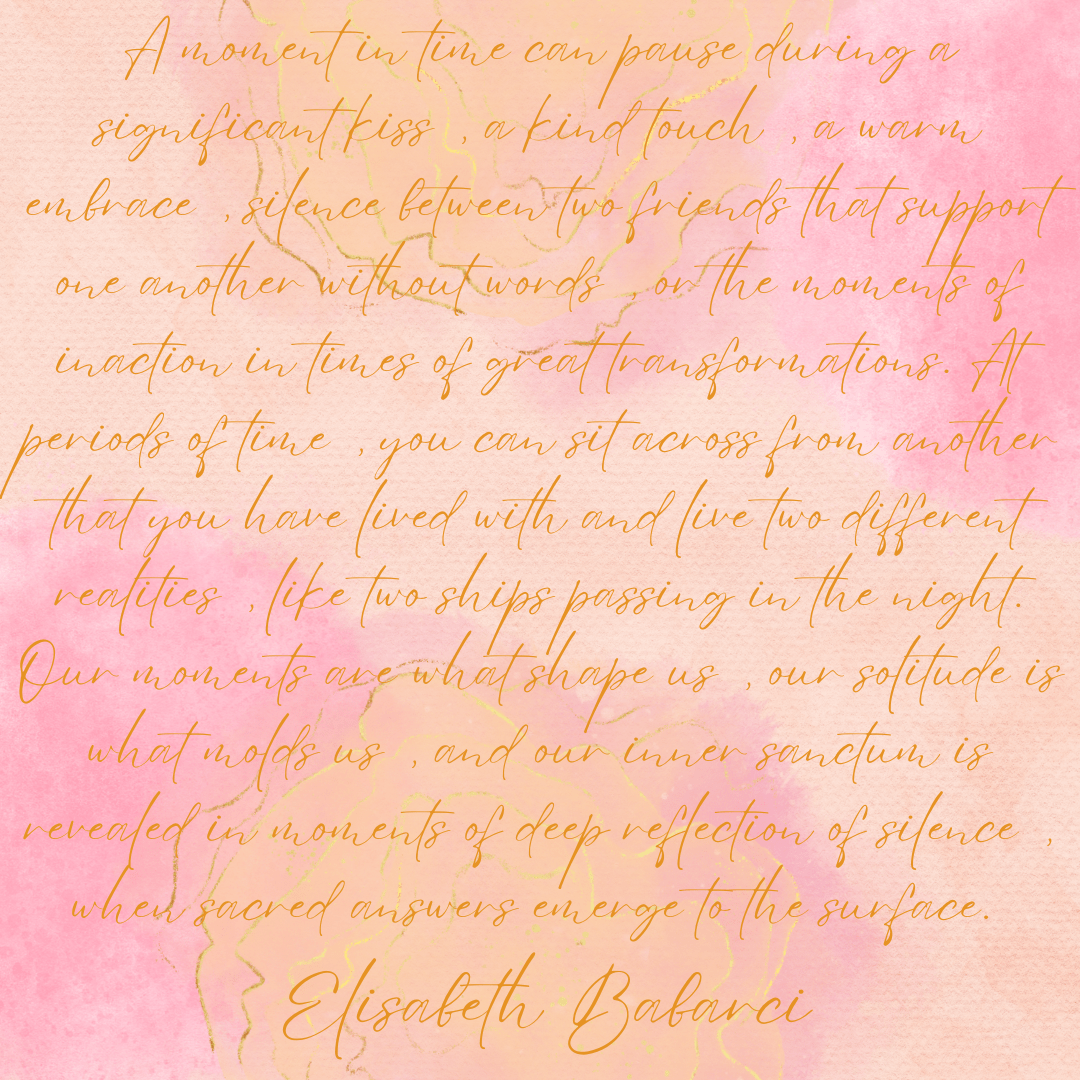 A moment in time can pause during a
significant kiss , a kind touch , a warm
embrace , silence between two friends that support
one another without words , or the moments of
inaction in times of great transformations. At
periods of time , you can sit across from another
that you have lived with and live two different
realities , like two ships passing in the night.
Our moments are what shape us , our solitude is
what molds us , and our inner sanctum is
revealed in moments of deep reflection of silence ,
when sacred answers emerge to the surface.
Elisabeth Babarci